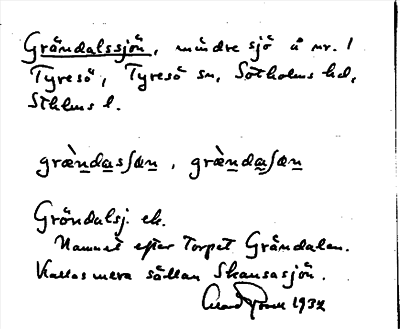 Grändalssjön, mindre sjö å nr. 1
Tyresö, Tyresö sn, Sotholms hd,
Sthlms l.
græ̀ndasʃæn, græ̀ndaʃæn
Gröndalsj. ek.
Namnet efter torpet Grändalen.
Kallas mera sällan Skansasjön.
1932